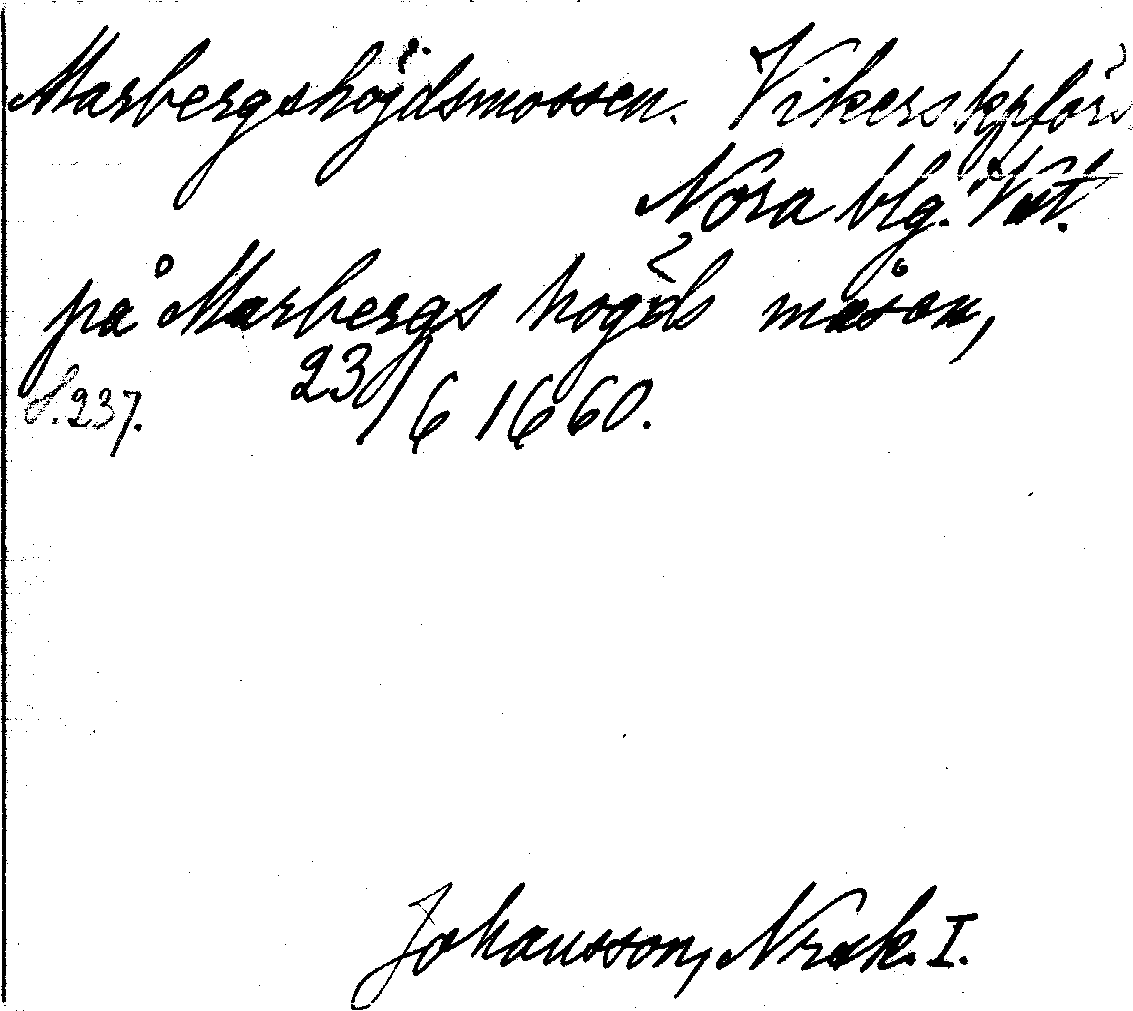 Marbergshöjdsmossen. Vikers kpförs
Nora blg. Vst.
på Marbergs hogds måsen,
S. 237. 23/6 1660.
Johansson, N